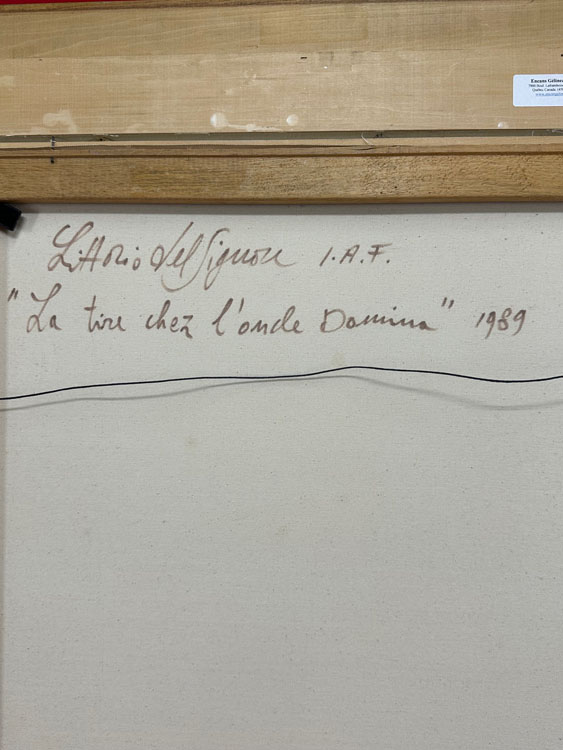 Encans Gélineau
Littorio Del Signore I.A.F.
"La tire chez l'oncle Domina" 1989